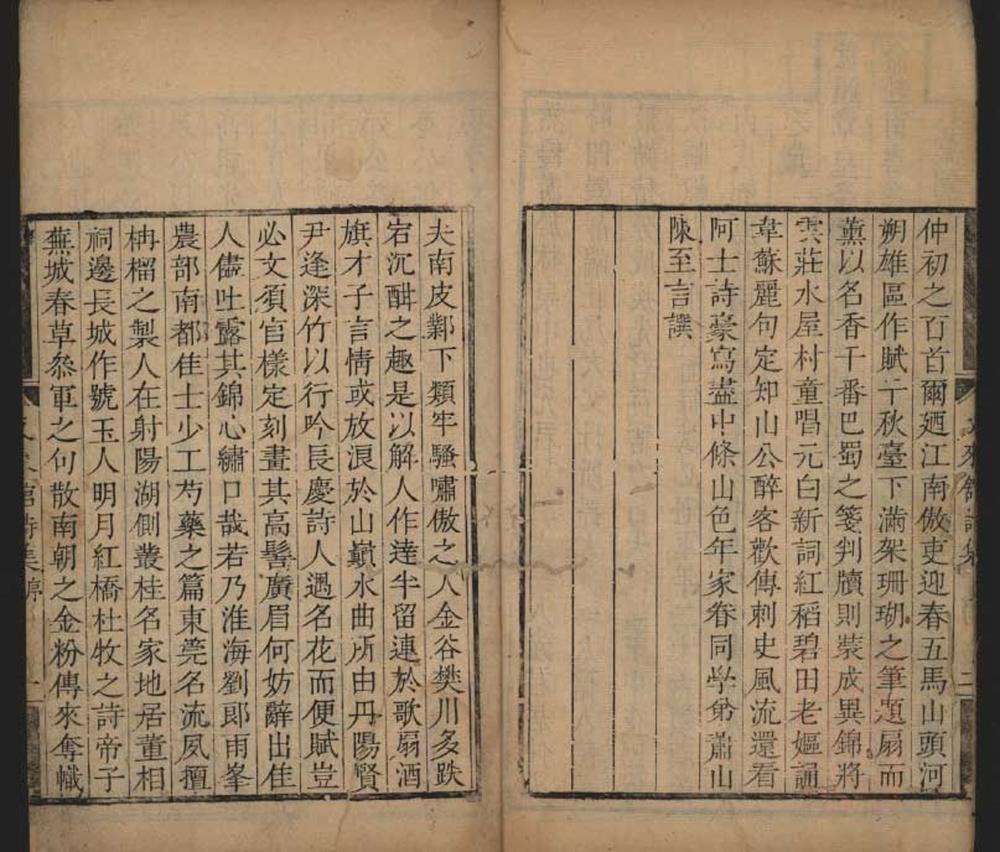 仲初之百首爾廼江南傲吏迎春五馬山頭河
朔雄區作賦千秋臺下滿架珊瑚之筆題扇而
薰以名香千番巴蜀之箋判牘則裝成異錦將
雲莊水屋村童唱元白新詞紅稻碧田老嫗誦
韋蘇麗句定知山公醉客歡傳刺史風流還看
阿士詩豪寫盡中條山色年家眷同學弟蕭山
陳至言譔
夫南皮鄴下類牢騷嘯傲之人金谷樊川多跌
宕沉酣之趣是以解人作達半留連於歌扇酒
旗才子言情或放浪於山巔水曲所由丹陽賢
尹逢深竹以行吟長慶詩人遇名花而便賦豈
必文須官樣定刻畫其高髻廣眉何妨辭出佳
人儘吐露其錦心繡口哉若乃淮海劉郎雨峯
農部南都佳士少工芍藥之篇東莞名流夙擅
枏榴之製人在射陽湖側叢桂名家地居董相
祠邊長城作號玉人明月紅橋杜牧之詩帝子
蕪城春草叅軍之句散南朝之金粉傳來奪幟